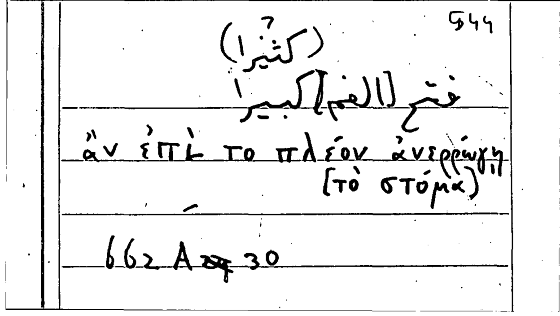 544
(كثيرا؟)
فتح [الفم] كبيرا
ἂν ἐπὶ το πλέον ἀνερρώγῃ
[τὸ στόμα]
662 A 30